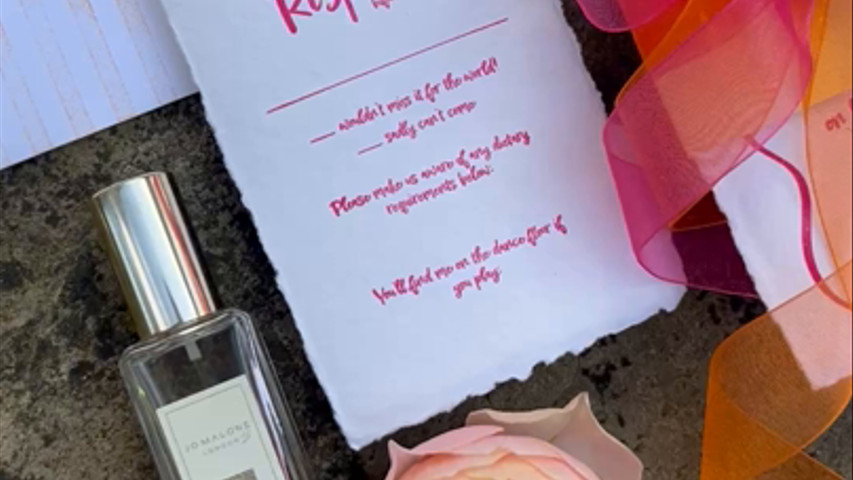 ___ wouldn't miss it for the world!
___ sadly can't come
Please make us aware of any dietary
requirements below:
You'll find me on the dance floor if
you play:
JO MALONE
LONDON